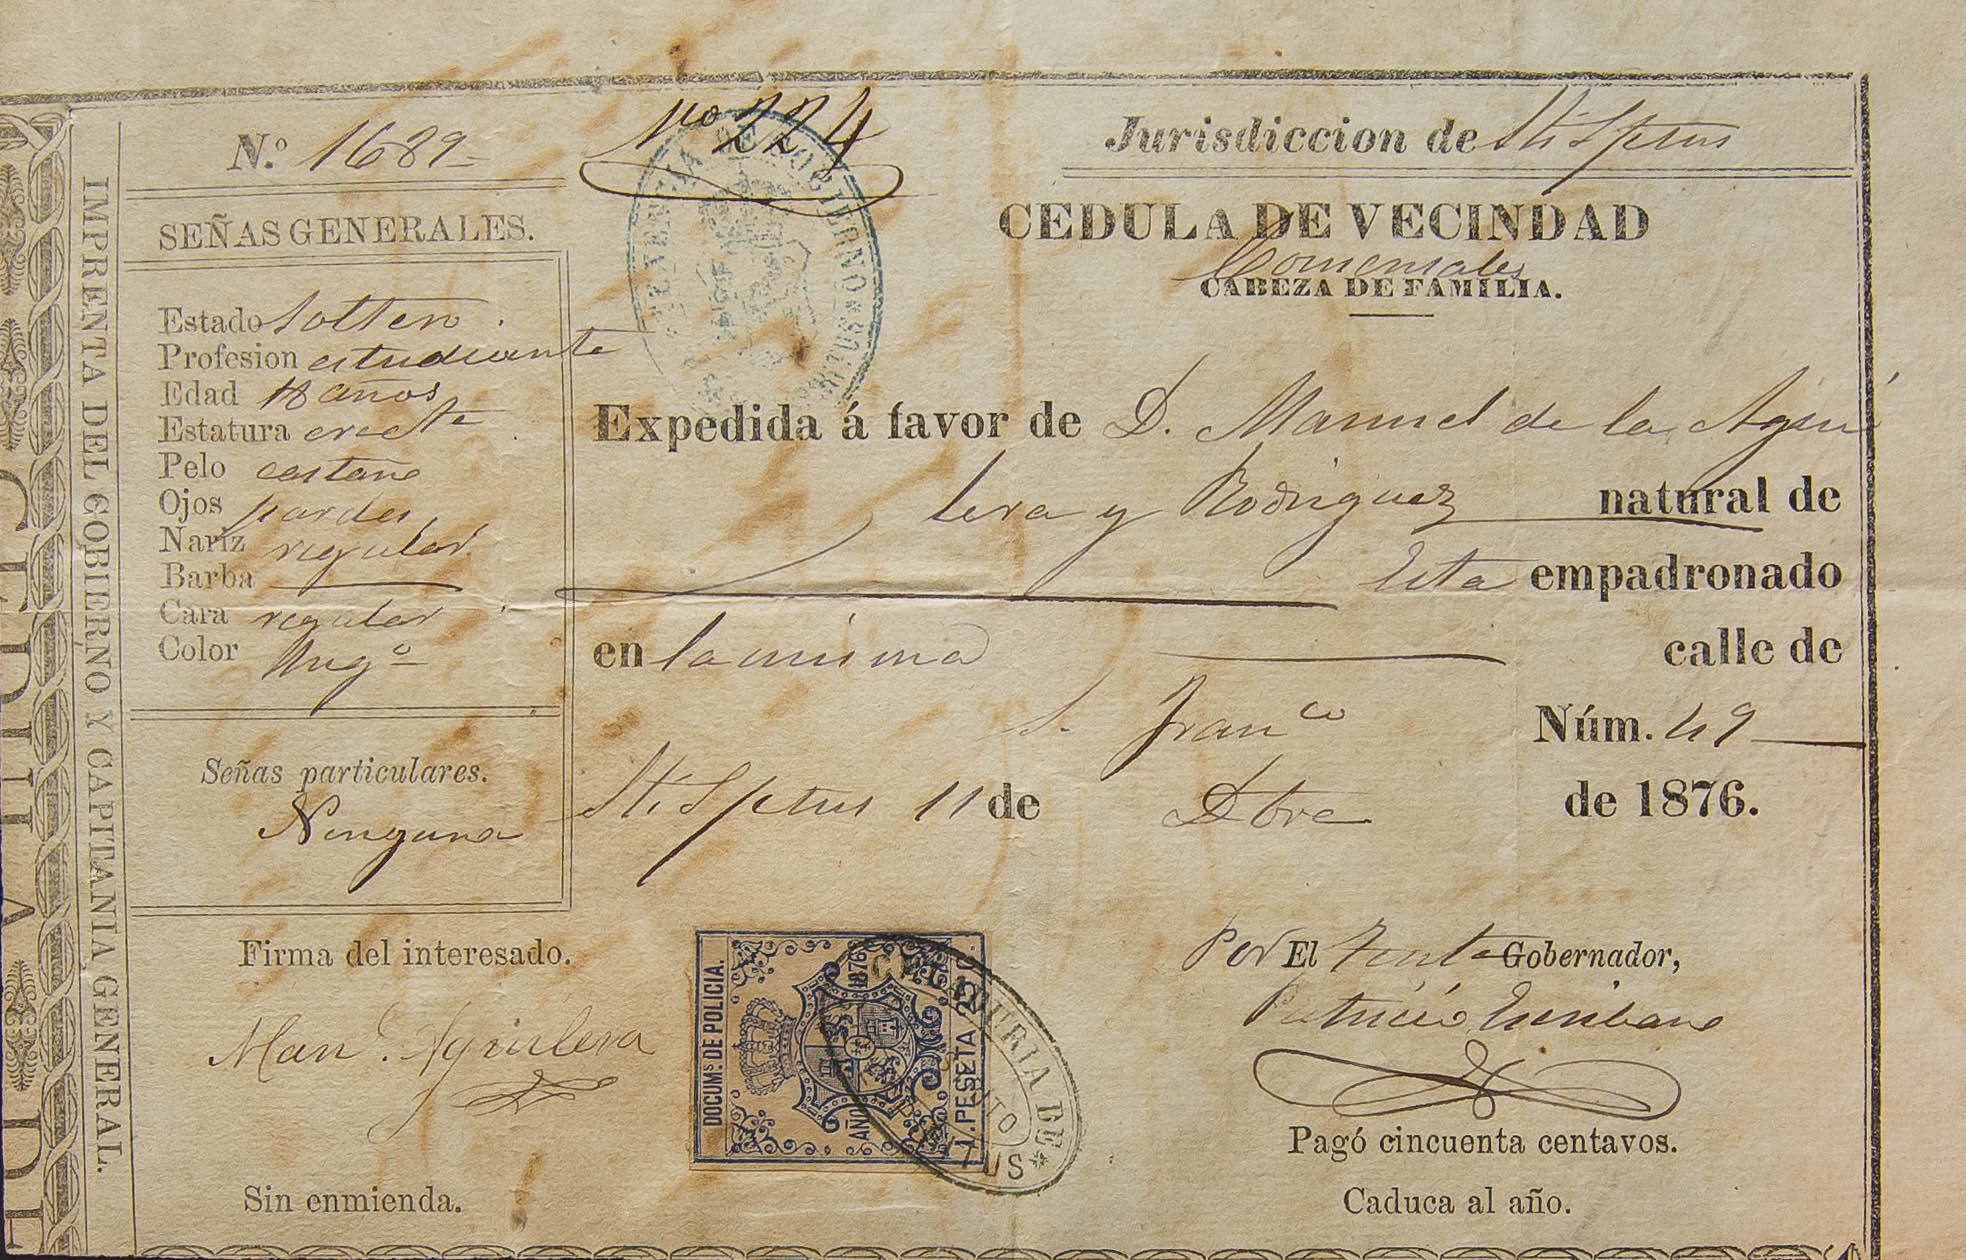 N.º 1689
nº 224
Jurisdiccion de Sti Sptus
SEÑAS GENERALES.
Estado soltero.
Profesion estudiante
Edad 18 años
Estatura
Pelo castaño
Ojos pardos
Nariz regular
Barba
Cara regular
Color
Señas particulares.
Ninguna
Firma del interesado.
Man. Aguilera
Sin enmienda.
CEDULA DE VECINDAD
Comensales
CABEZA DE FAMILIA.
Expedida á favor de D. Manuel de la Agui
lera y Rodriguez natural de
esta empadronado
en la misma calle de
S. Franco Núm. 49
Sti Sptus 11 de Dbre de 1876.
Por El Tente Gobernador,
Patricio
Pagó cincuenta centavos.
Caduca al año.
TENENCIA DE GOBIERNO
DOCUMs DE POLICIA.
AÑO 1876
1. PESETA 25 Cs
IMPRENTA DEL GOBIERNO Y CAPITANIA GENERAL.